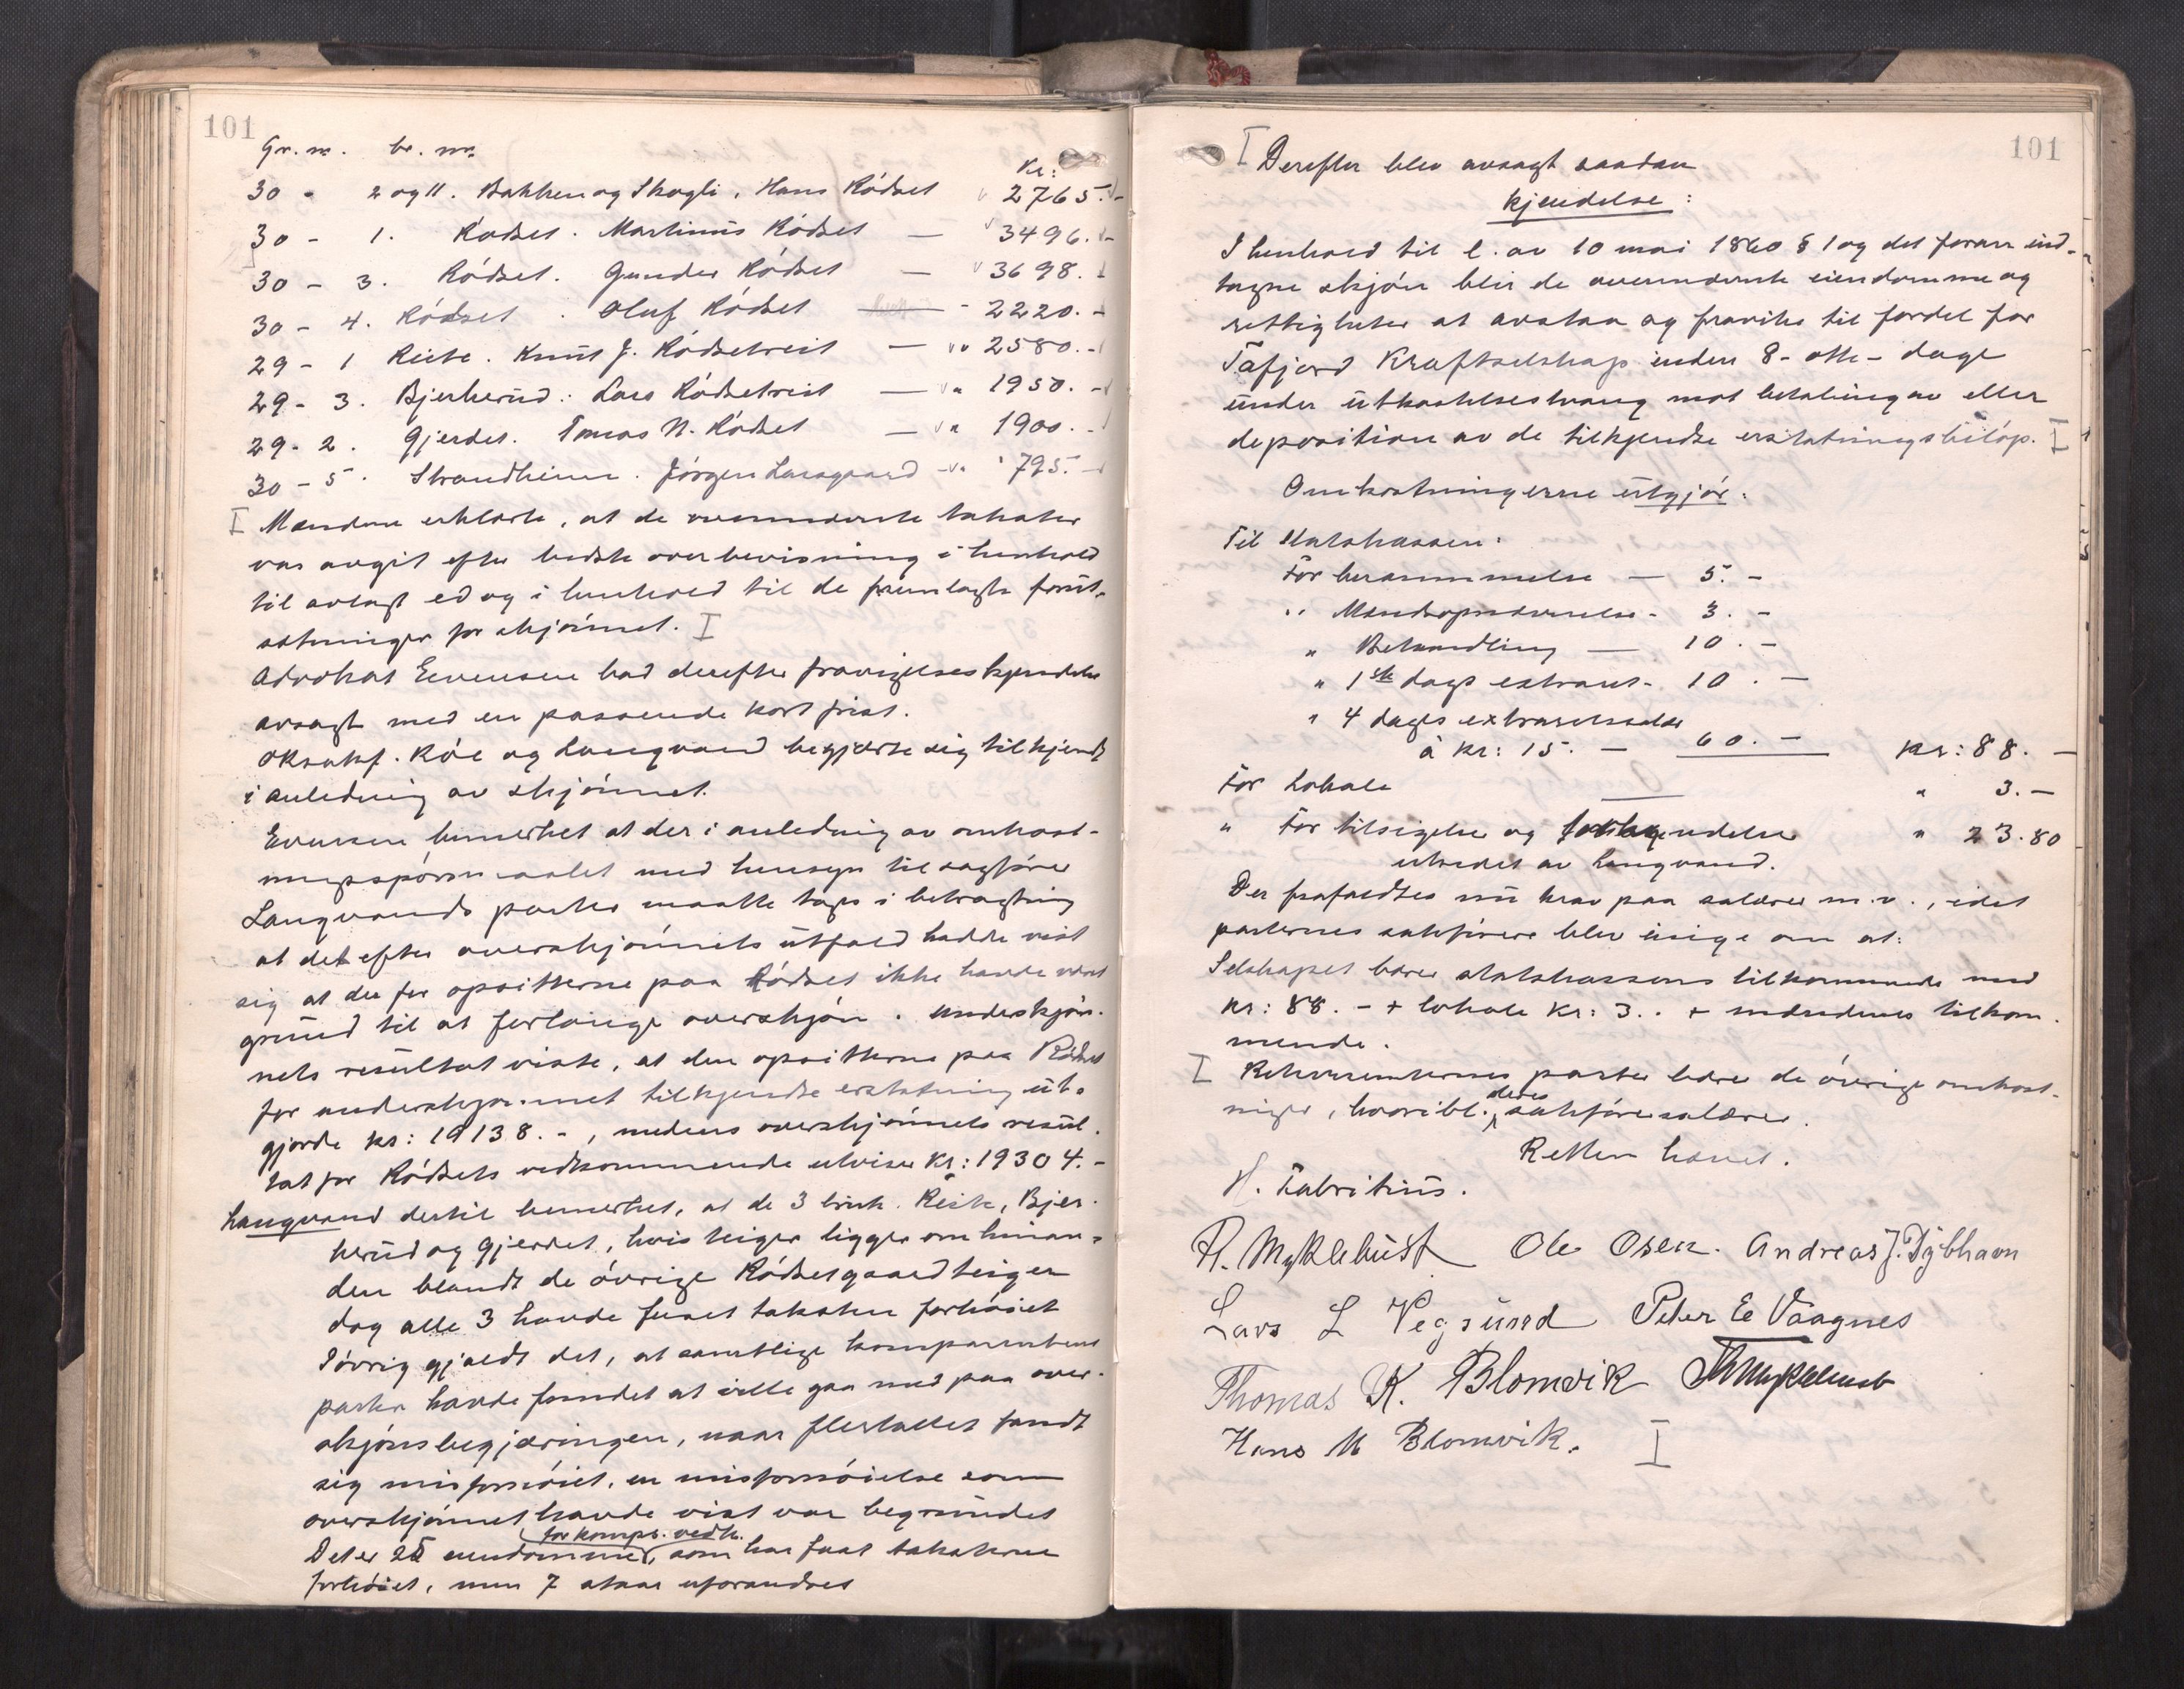 101
Gr. nr. br. nr.
Kr:
30 - 2 og 11. Bakken og Skogli. Hans Rödset 2765.-
30 - 1. Rödset. Martinus Rödset — 3496.-
30 - 3. Rödset. Gunder Rödset — 3698.-
30 - 4. Rödset. Oluf Rödset - 2220.-
29 - 1 Reite. Knut J. Rödsetreit — " 2580.-
29 - 3. Bjerkerud: Lars Rödsetreit — " 1950.-
29 - 2. Gjerdet. Tomas N. Rödset — " 1900.-
30 - 5. Strandheim. Jörgen Langaard - " 795.-
Mændene erklærte, at de ovennævnte takster
var avgit efter bedste overbevisning i henhold
til avlagt ed og i henhold til de fremlagte forut-
sætninger for skjönnet.
Advokat Evensen bad derefter fravigelseskjendelse
avsagt med en passende kort frist.
Oksakf. Röe og Langvand begjærte sig tilkjendt
i anledning av skjönnet.
Evensen bemerket at der i anledning av omkost-
ningsspörsmaalet med hensyn til sagförer
Langvands parter maatte tages i betragtning
at det efter overskjönnets utfald hadde vist
sig at der for opsitterne paa Rödset ikke havde været
grund til at forlange overskjön. Underskjön-
nets resultat viste, at den opsitterne paa Rödset
for underskjönnet tilkjendte erstatning ut-
gjorde kr: 19138.-, medens overskjönnets resul-
tat for Rödsets vedkommende utviser kr: 19304.-
Langvand dertil bemerket, at de 3 bruk. Reite, Bjer-
kerud og Gjerdet, hvis teiger ligger om hinan-
den blandt de övrige Rödsetgaardteiger
dog alle 3 havde faaet taksten forhöiet
Iövrig gjaldt det, at samtlige komparentens
parter havde fundet at ville gaa med paa over-
skjönsbegjæringen, naar flertallet fandt
sig misfornöiet, en misfornöielse som
overskjönnet havde vist var begrundet
for kompr. vedk.
Det er eiendomme, som har faat taksterne
forhöiet, men 7 staar uforandret
101
Derefter blev avsagt saadan
kjendelse:
I henhold til l. av 10 mai 1860 § 1 og det foran ind-
tagne skjön blir de ovennævnte eiendomme og
rettigheter at avstaa og fravike til fordel for
Tafjord Kraftselskap inden 8 - otte - dage
under utkastelsestvang mot betaling av eller
deposition av de tilkjendte erstatningsbelöp.
Omkostningerne utgjör:
Til Statskassen:
For berammelse — 5.-
" Mændsopnævnelse - 3.-
" Behandling — 10.-
" 1ste dags extraret - 10.-
" 4 dages extraretssalær
à kr: 15.- 60.- kr: 88.-
For Lokale " 3.-
" For tilsigelse og " 23.80
utredet av Langvand.
Der frafaldtes nu krav paa salærer m.v., idet
parternes sakförere blev enige om at:
Selskapet bærer statskassens tilkommende med
kr: 88.- + lokale kr: 3.. + mændenes tilkom-
mende.
Rekvirenternes parter bærer de övrige omkost-
deres
ninger, hvoribl. sakföresalærer.
Retten hævet.
H. Fabritius.
R. Myklebust Ole Osen. Andreas J. Dybhavn
Lars L Vegsund Peter E Vaagnes
Thomas K. Blomvik Myklebust
Hans M Blomvik.